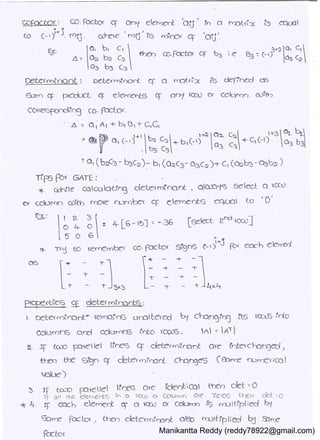 Cofactor : Co-Factor of any element 'aij' in a matrix is equal
to (-1)^i+j. mij. where 'mij' is minor of 'aij'.
Ex: Δ = | a1 b1 c1 | then co-factor of b3 i.e B3 = (-1)^3+2 | a1 c1 |
| a2 b2 c2 | | a2 c2 |
| a3 b3 c3 |
Determinant : Determinant of a matrix is defined as
Sum of product of elements of any row or column with
corresponding co-factor.
Δ = a1 A1 + b1 B1 + C1C1
= a1 (-1)^1+1 | b2 c2 | + b1(-1)^1+2 | a2 c2 | + C1(-1)^1+3 | a2 b2 |
| b3 c3 | | a3 c3 | | a3 b3 |
= a1(b2C3 - b3C2) - b1(a2C3 - a3C2) + C1(a2b3 - a3b2)
Tips for GATE :
* while calculating determinant, always select a row
or column with more number of elements equal to '0'
Ex: | 1 2 3 |
| 0 4 0 | = 4[6-15] = -36 [Select 2nd row]
| 5 0 6 |
* Try to remember co-factor signs (-1)^i+j for each element
as [ + - + ] [ + - + - ]
[ - + - ] [ - + - + ]
[ + - + ]3x3 [ + - + - ]
[ - + - + ]4x4
Properties of determinants:
1. Determinant remains unaltered by changing its rows into
columns and columns into rows. |A| = |A^T|
2. If two parallel lines of determinant are interchanged,
then the sign of determinant changes (same numerical
value)
3. If two parallel lines are identical then det = 0
If all the elements in a row or column are zeros then det = 0
* 4. If each element of a row or column is multiplied by
Some factor, then determinant also multiplied by same
factor
Manikantta Reddy (reddy78922@gmail.com)